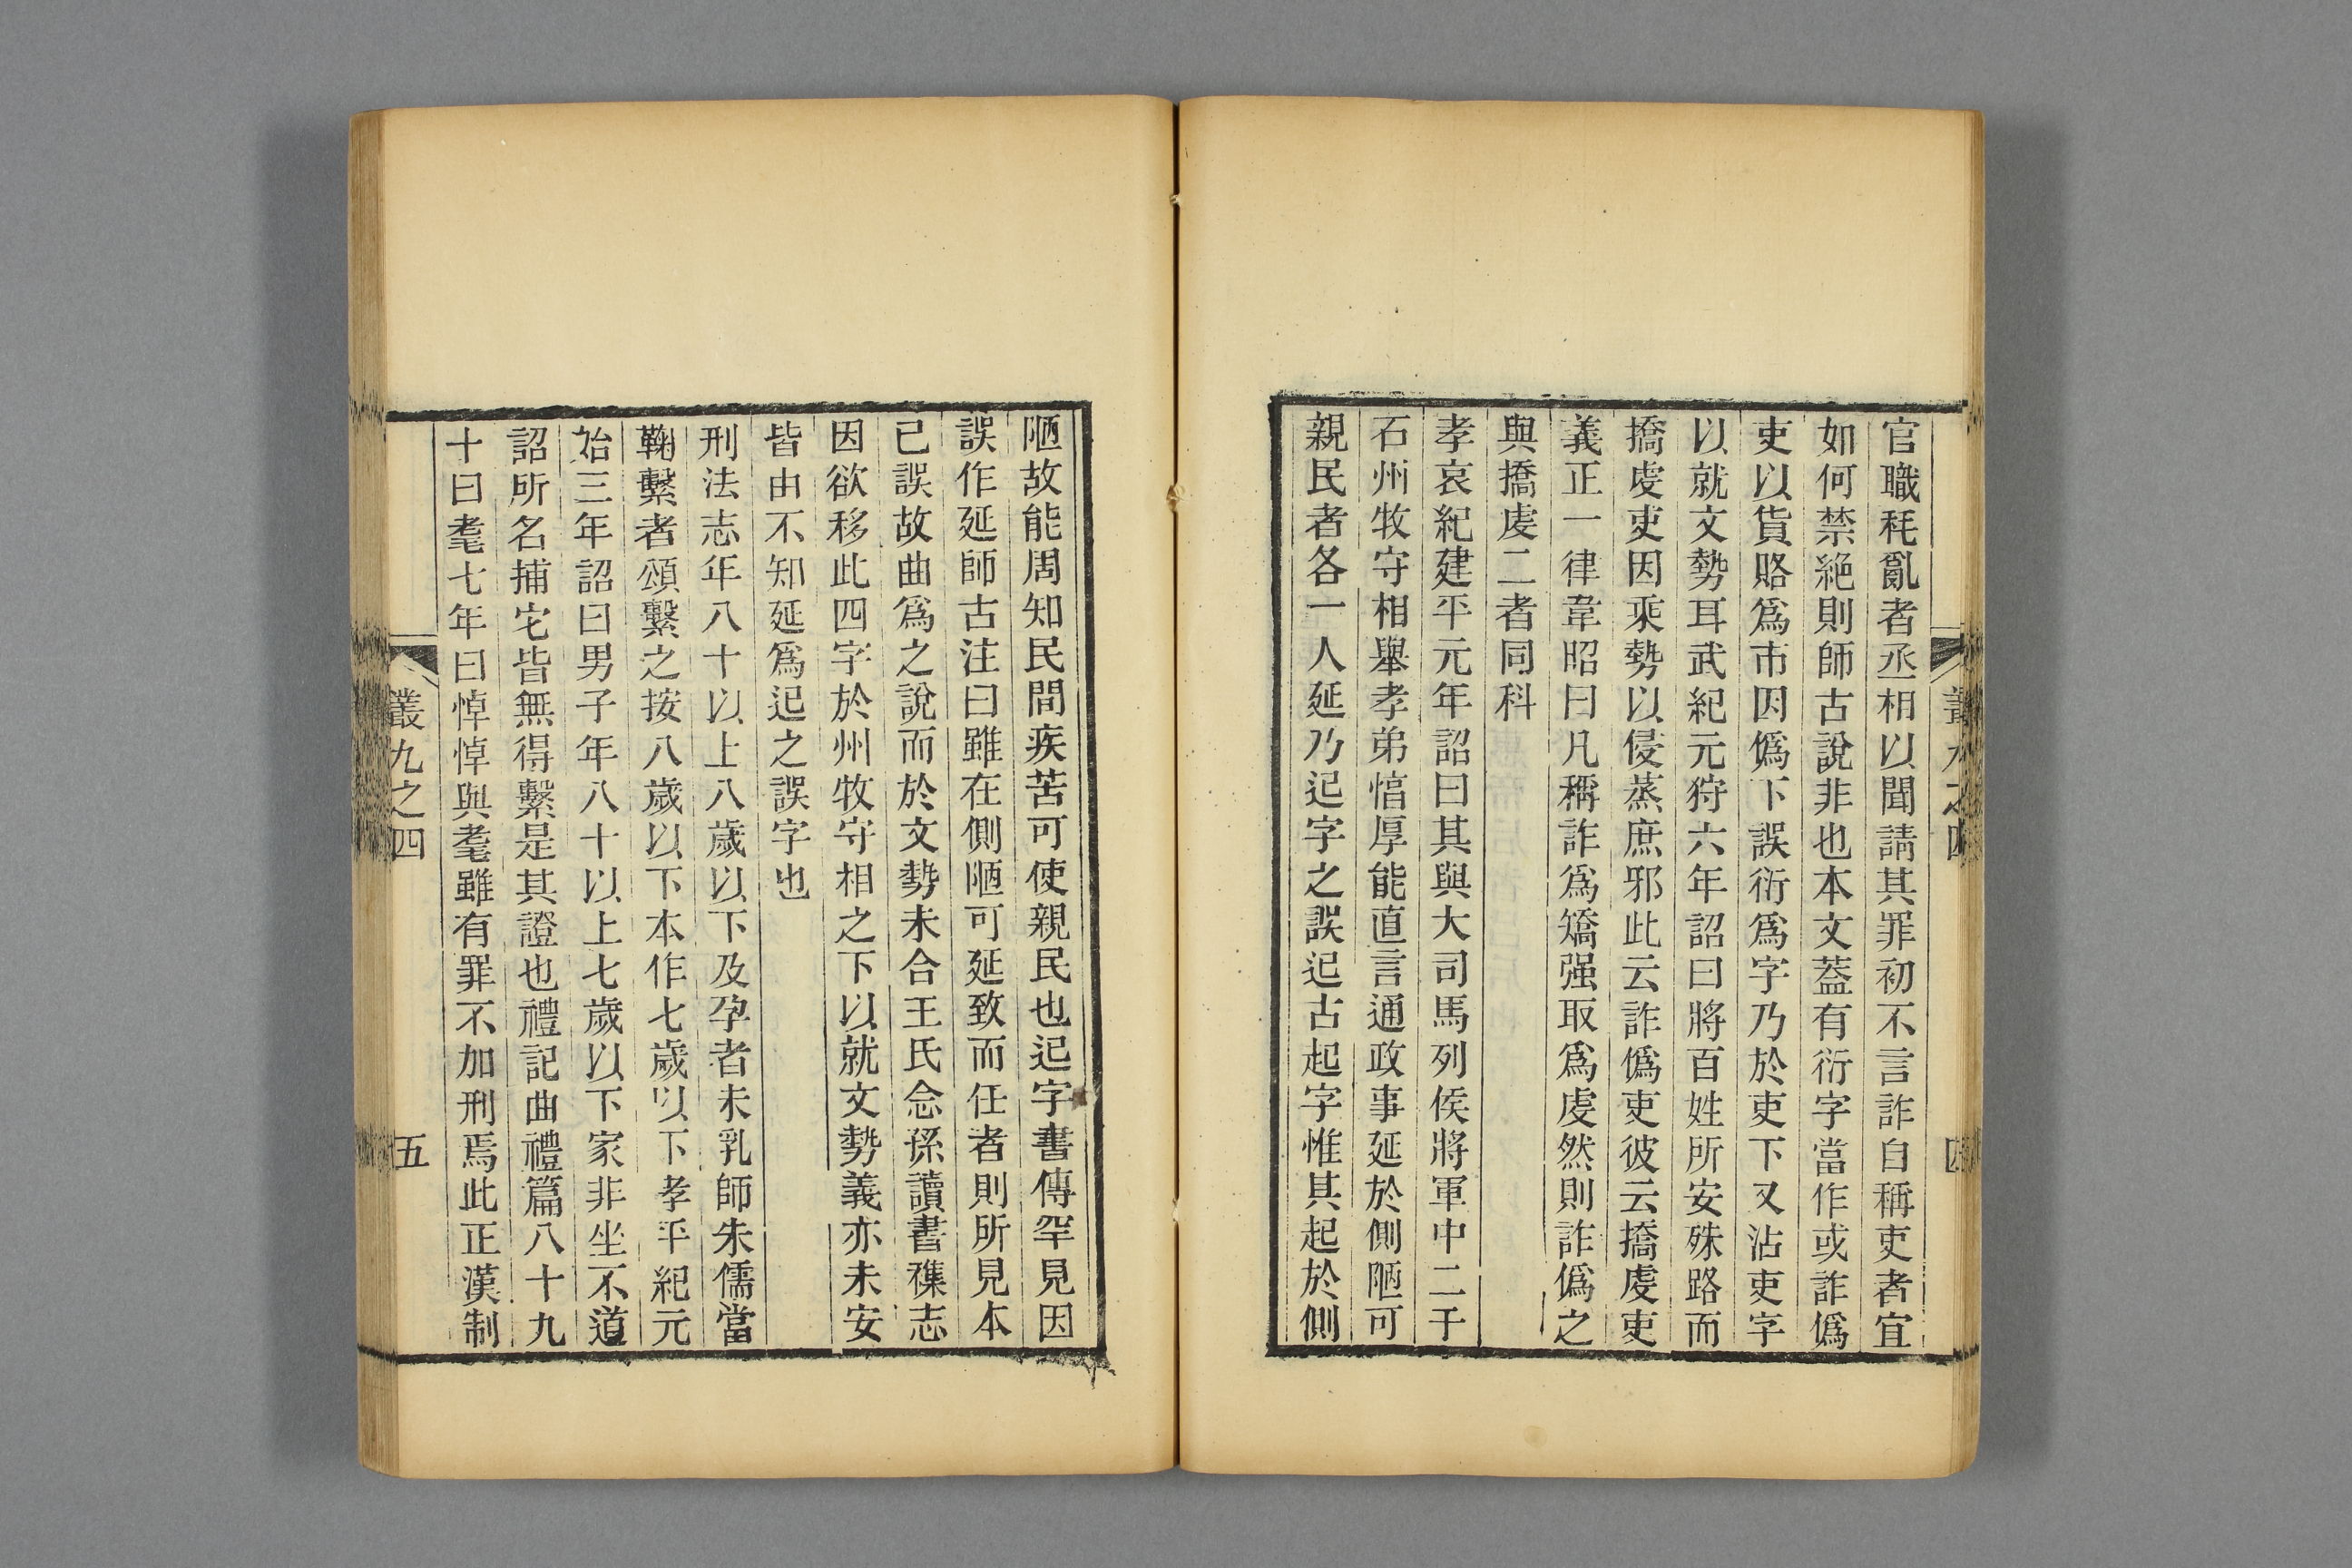 官職秏亂者丞相以聞請其罪初不言詐自稱吏者宜
如何禁絕則師古說非也本文蓋有衍字當作或詐僞
吏以貨賂爲市因僞下誤衍爲字乃於吏下又沾吏字
以就文勢耳武紀元狩六年詔曰將百姓所安殊路而
撟虔吏因乘勢以侵蒸庶邪此云詐僞吏彼云撟虔吏
義正一律韋昭曰凡稱詐爲矯强取爲虔然則詐僞之
與撟虔二者同科
孝哀紀建平元年詔曰其與大司馬列侯將軍中二千
石州牧守相舉孝弟惇厚能直言通政事延於側陋可
親民者各一人延乃迟字之誤迟古起字惟其起於側
陋故能周知民間疾苦可使親民也迟字書傳罕見因
誤作延師古注曰雖在側陋可延致而任者則所見本
已誤故曲爲之說而於文勢未合王氏念孫讀書襍志
因欲移此四字於州牧守相之下以就文勢義亦未安
皆由不知延爲迟之誤字也
刑法志年八十以上八歲以下及孕者未乳師朱儒當
鞠繫者頌繫之按八歲以下本作七歲以下孝平紀元
始三年詔曰男子年八十以上七歲以下家非坐不道
詔所名捕它皆無得繫是其證也禮記曲禮篇八十九
十曰耄七年曰悼悼與耄雖有罪不加刑焉此正漢制
叢九之四
五